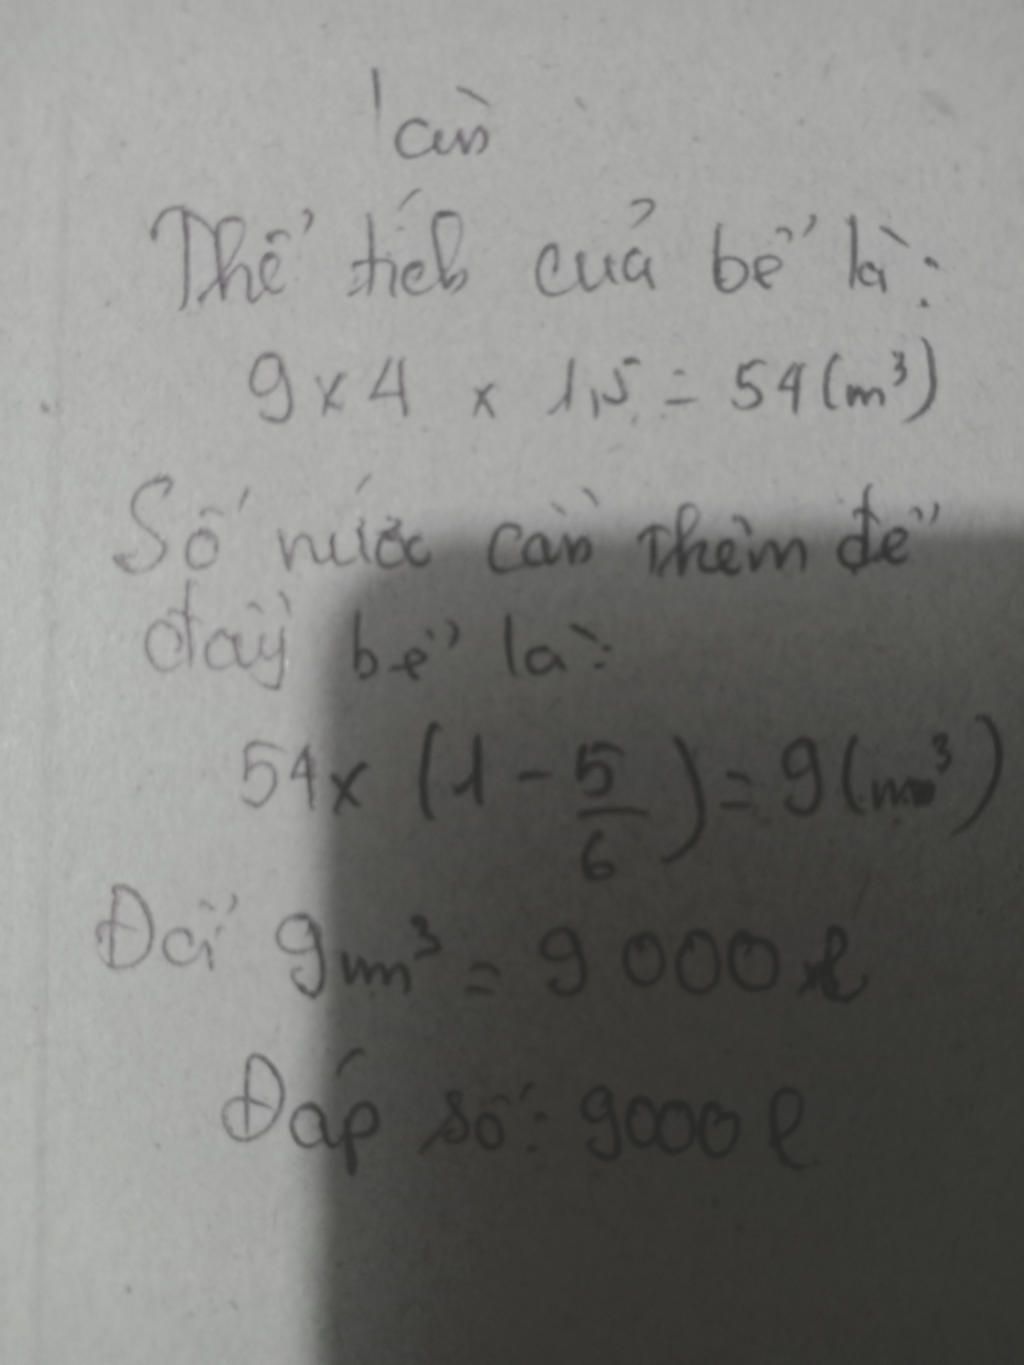 Thể tích của bể là:
9 x 4 x 1,5 = 54 (m³)
Số nước cần thêm để
đầy bể là:
54 x (1 - 5/6) = 9 (m³)
Đổi 9m³ = 9 000 l
Đáp số: 9000 l